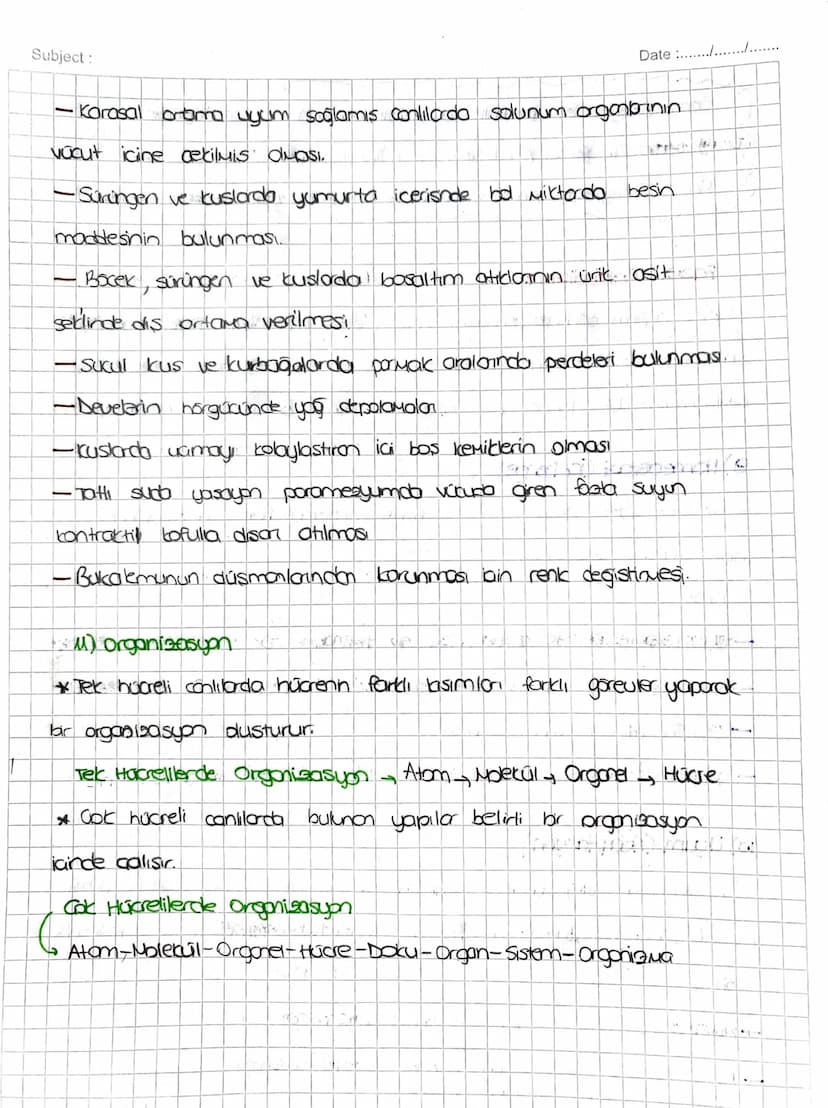 Subject :
Date :......./......./.......
- Karasal ortama uyum sağlamış canlılarda solunum organlarının
vücut içine çekilmiş olması.
- Sürüngen ve kuşlarda yumurta içerisinde bol miktarda besin
maddesinin bulunması.
- Böcek, sürüngen ve kuşlarda boşaltım atıklarının ürik asit
şeklinde dış ortama verilmesi
- Sucul kuş ve kurbağalarda parmak aralarında perdeleri bulunması.
- Develerin hörgücünde yağ depolamaları
- Kuşlarda uçmayı kolaylaştıran içi boş kemiklerin olması
- Tatlı suda yaşayan paramesyumda vücuda giren fazla suyun
kontraktil kofulla dışarı atılması
- Bukalemunun düşmanlarından korunması için renk değiştirmesi.
11) Organizasyon
* Tek hücreli canlılarda hücrenin farklı kısımları farklı görevler yaparak
bir organizasyon oluşturur.
Tek Hücrelilerde Organizasyon → Atom → Molekül → Organel → Hücre
* Çok hücreli canlılarda bulunan yapılar belirli bir organizasyon
içinde çalışır.
Çok Hücrelilerde Organizasyon
↳ Atom-Molekül-Organel-Hücre-Doku-Organ-Sistem-Organizma